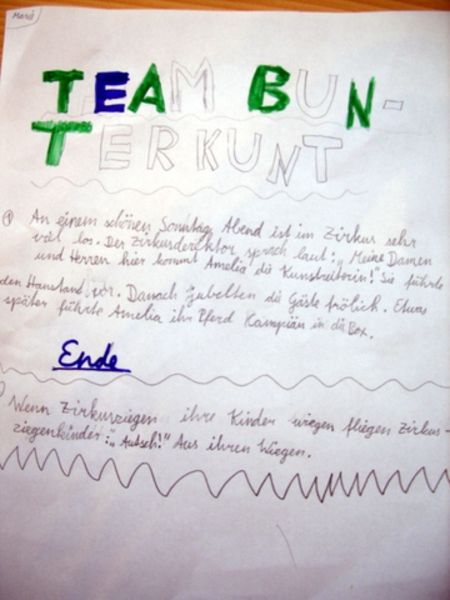 Marie
TEAM BUN-
TERKUNT
① An einem schönen Sonntag Abend ist im Zirkus sehr
viel los. Der Zirkusdirektor sprach laut: „Meine Damen
und Herren hier kommt Amelia die Kunstreiterin!" Sie führte
den Handstand vor. Danach jubelten die Gäste frölich. Etwas
später führte Amelia ihr Pferd Kampiän in die Box.
Ende
Wenn Zirkusziegen ihre Kinder wiegen fliegen Zirkus-
ziegenkinder: „Autsch!" Aus ihren Wiegen.